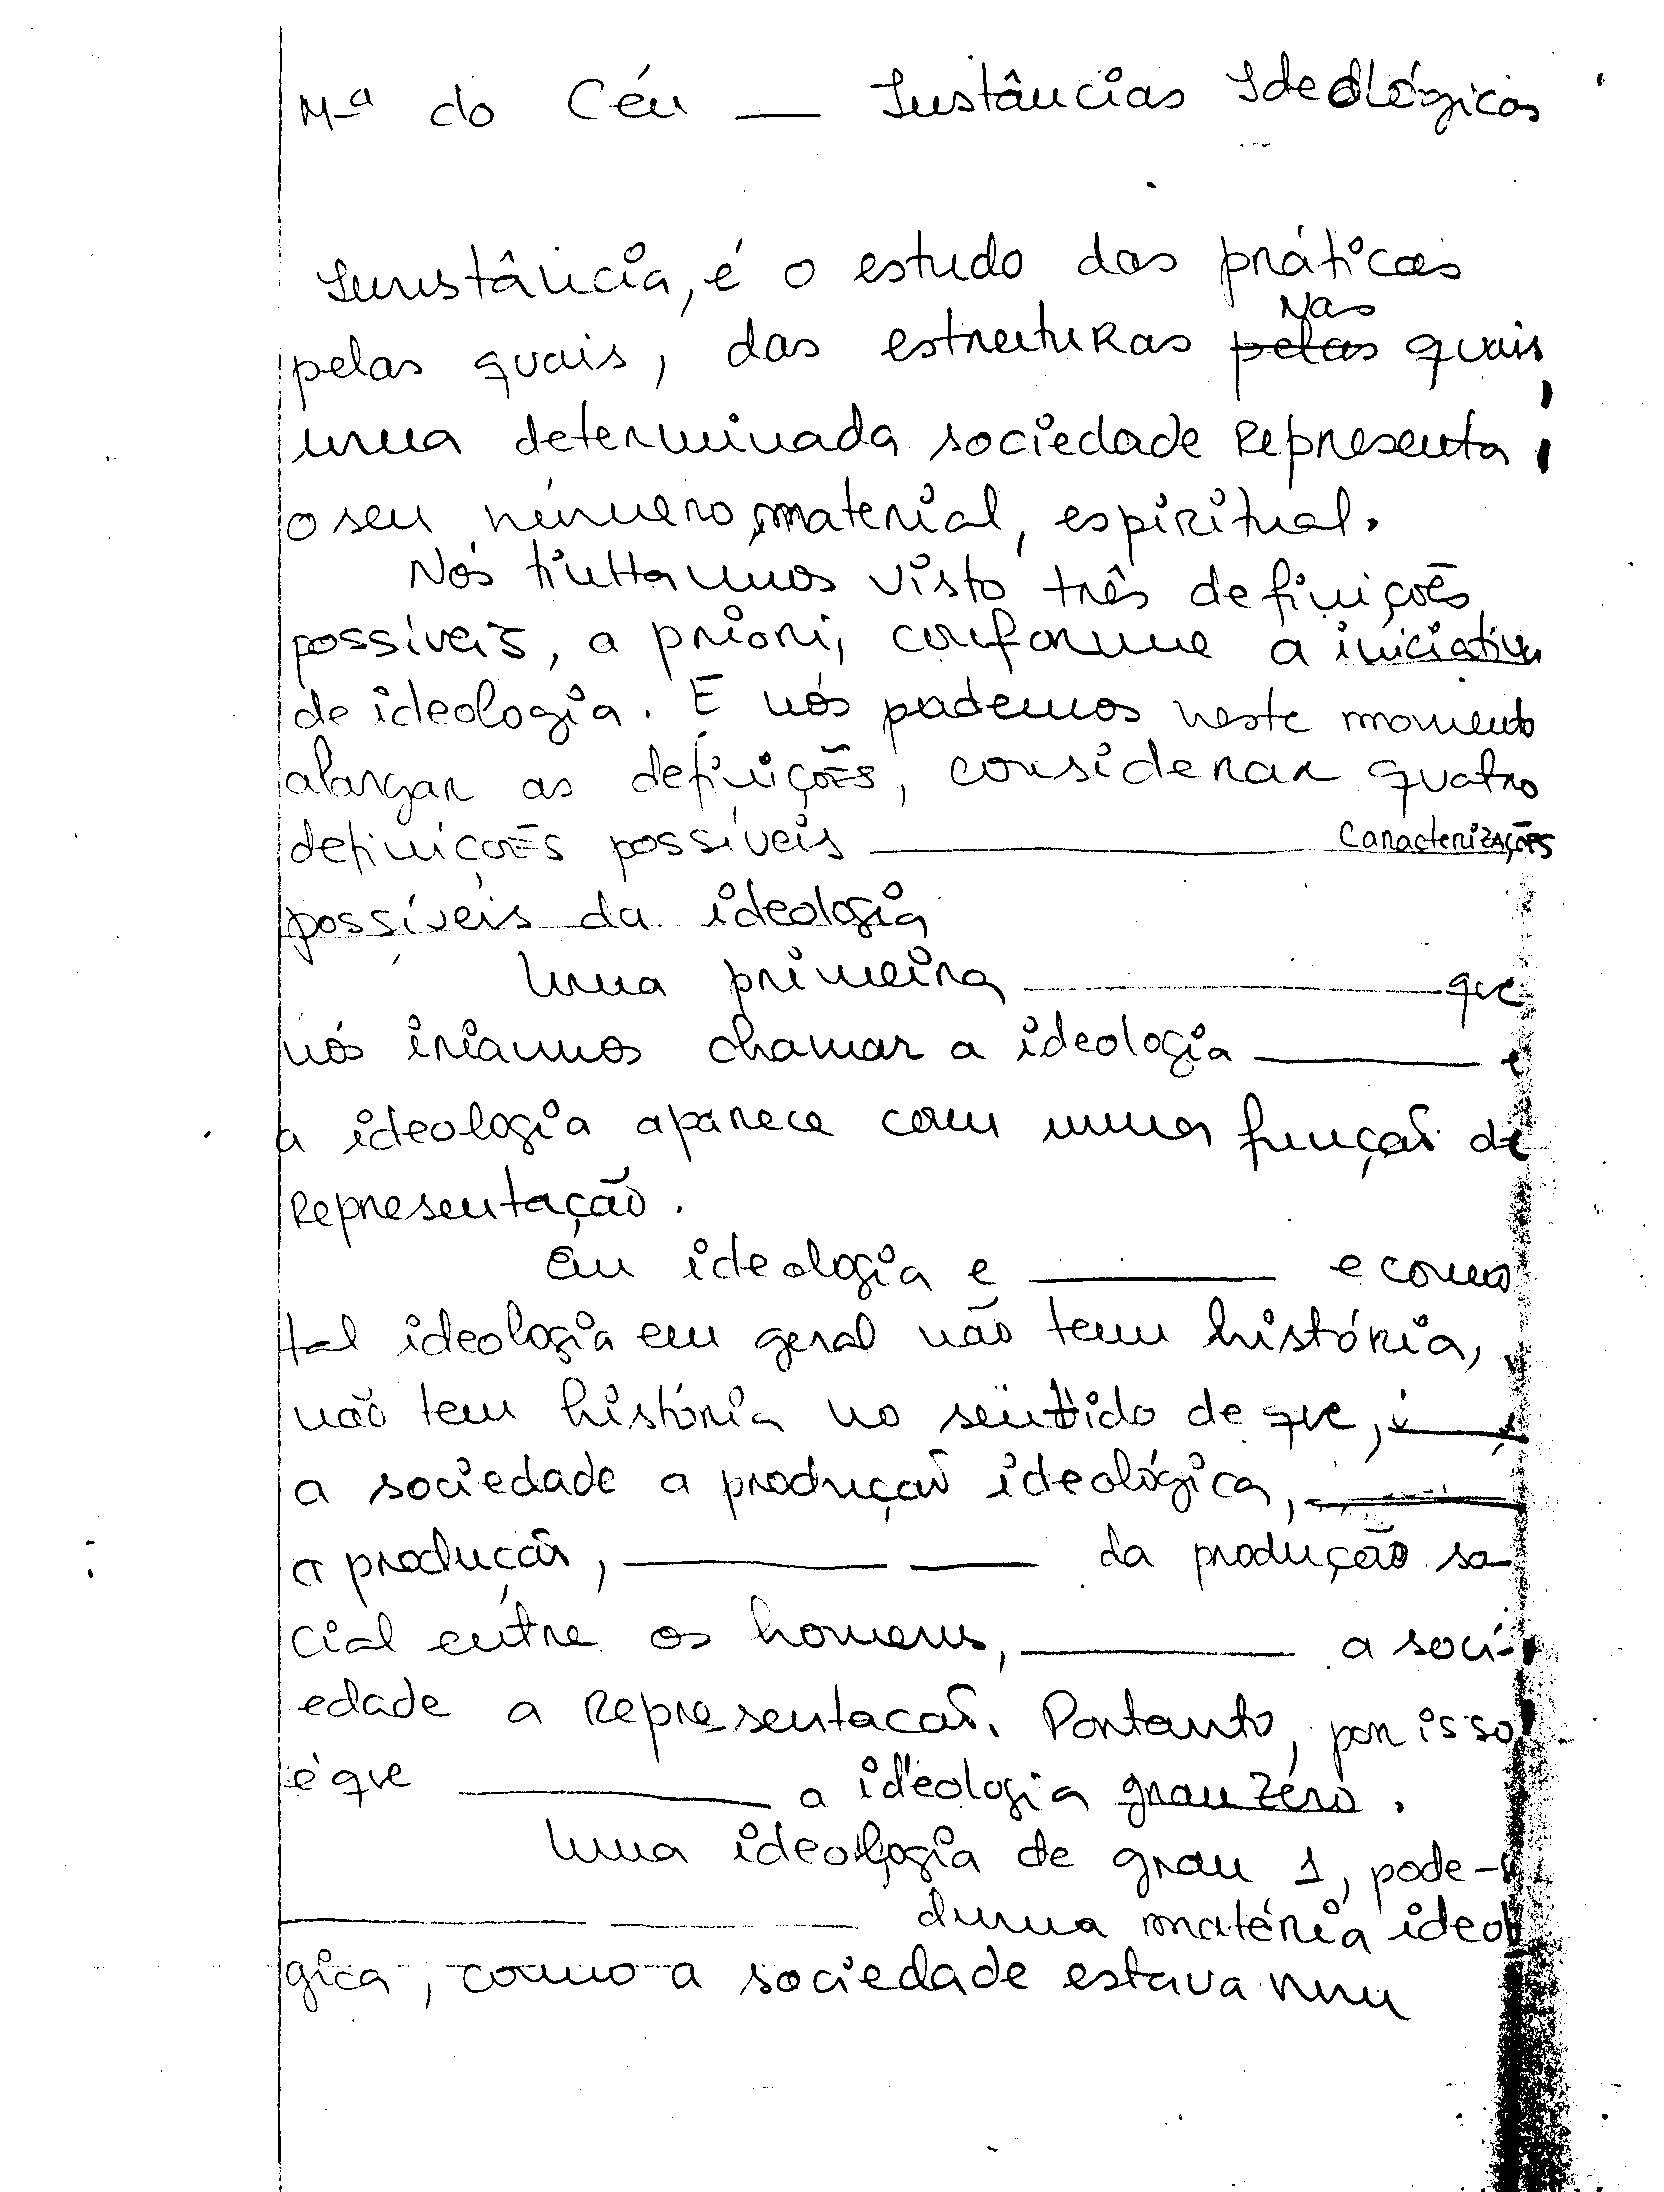 Mª do Céu — Instâncias Ideológicas
Instância, é o estudo das práticas
nas
pelas quais, das estruturas pelas quais,
uma determinada sociedade representa,
o seu número, material, espiritual.
Nós tinhamos visto três definições
possíveis, a priori, conforme a iniciativa
de ideologia. E nós podemos neste momento
alargar as definições, considerar quatro
definições possíveis ____ Caracterizações
possíveis da ideologia
Uma primeira ____ que
nós iríamos chamar a ideologia ____ e
a ideologia aparece com uma função de
representação.
Em ideologia e ____ e como
tal ideologia em geral não tem história,
não tem história no sentido de que, ____
a sociedade a produção ideológica, ____
a produção, ____ ____ da produção so-
cial entre os homens, ____ a soci-
edade a representação. Portanto, por isso
é que ____ a ideologia grau zéro.
Uma ideologia de grau 1, pode-
____ ____ duma matéria ideoló
gica, como a sociedade estava num